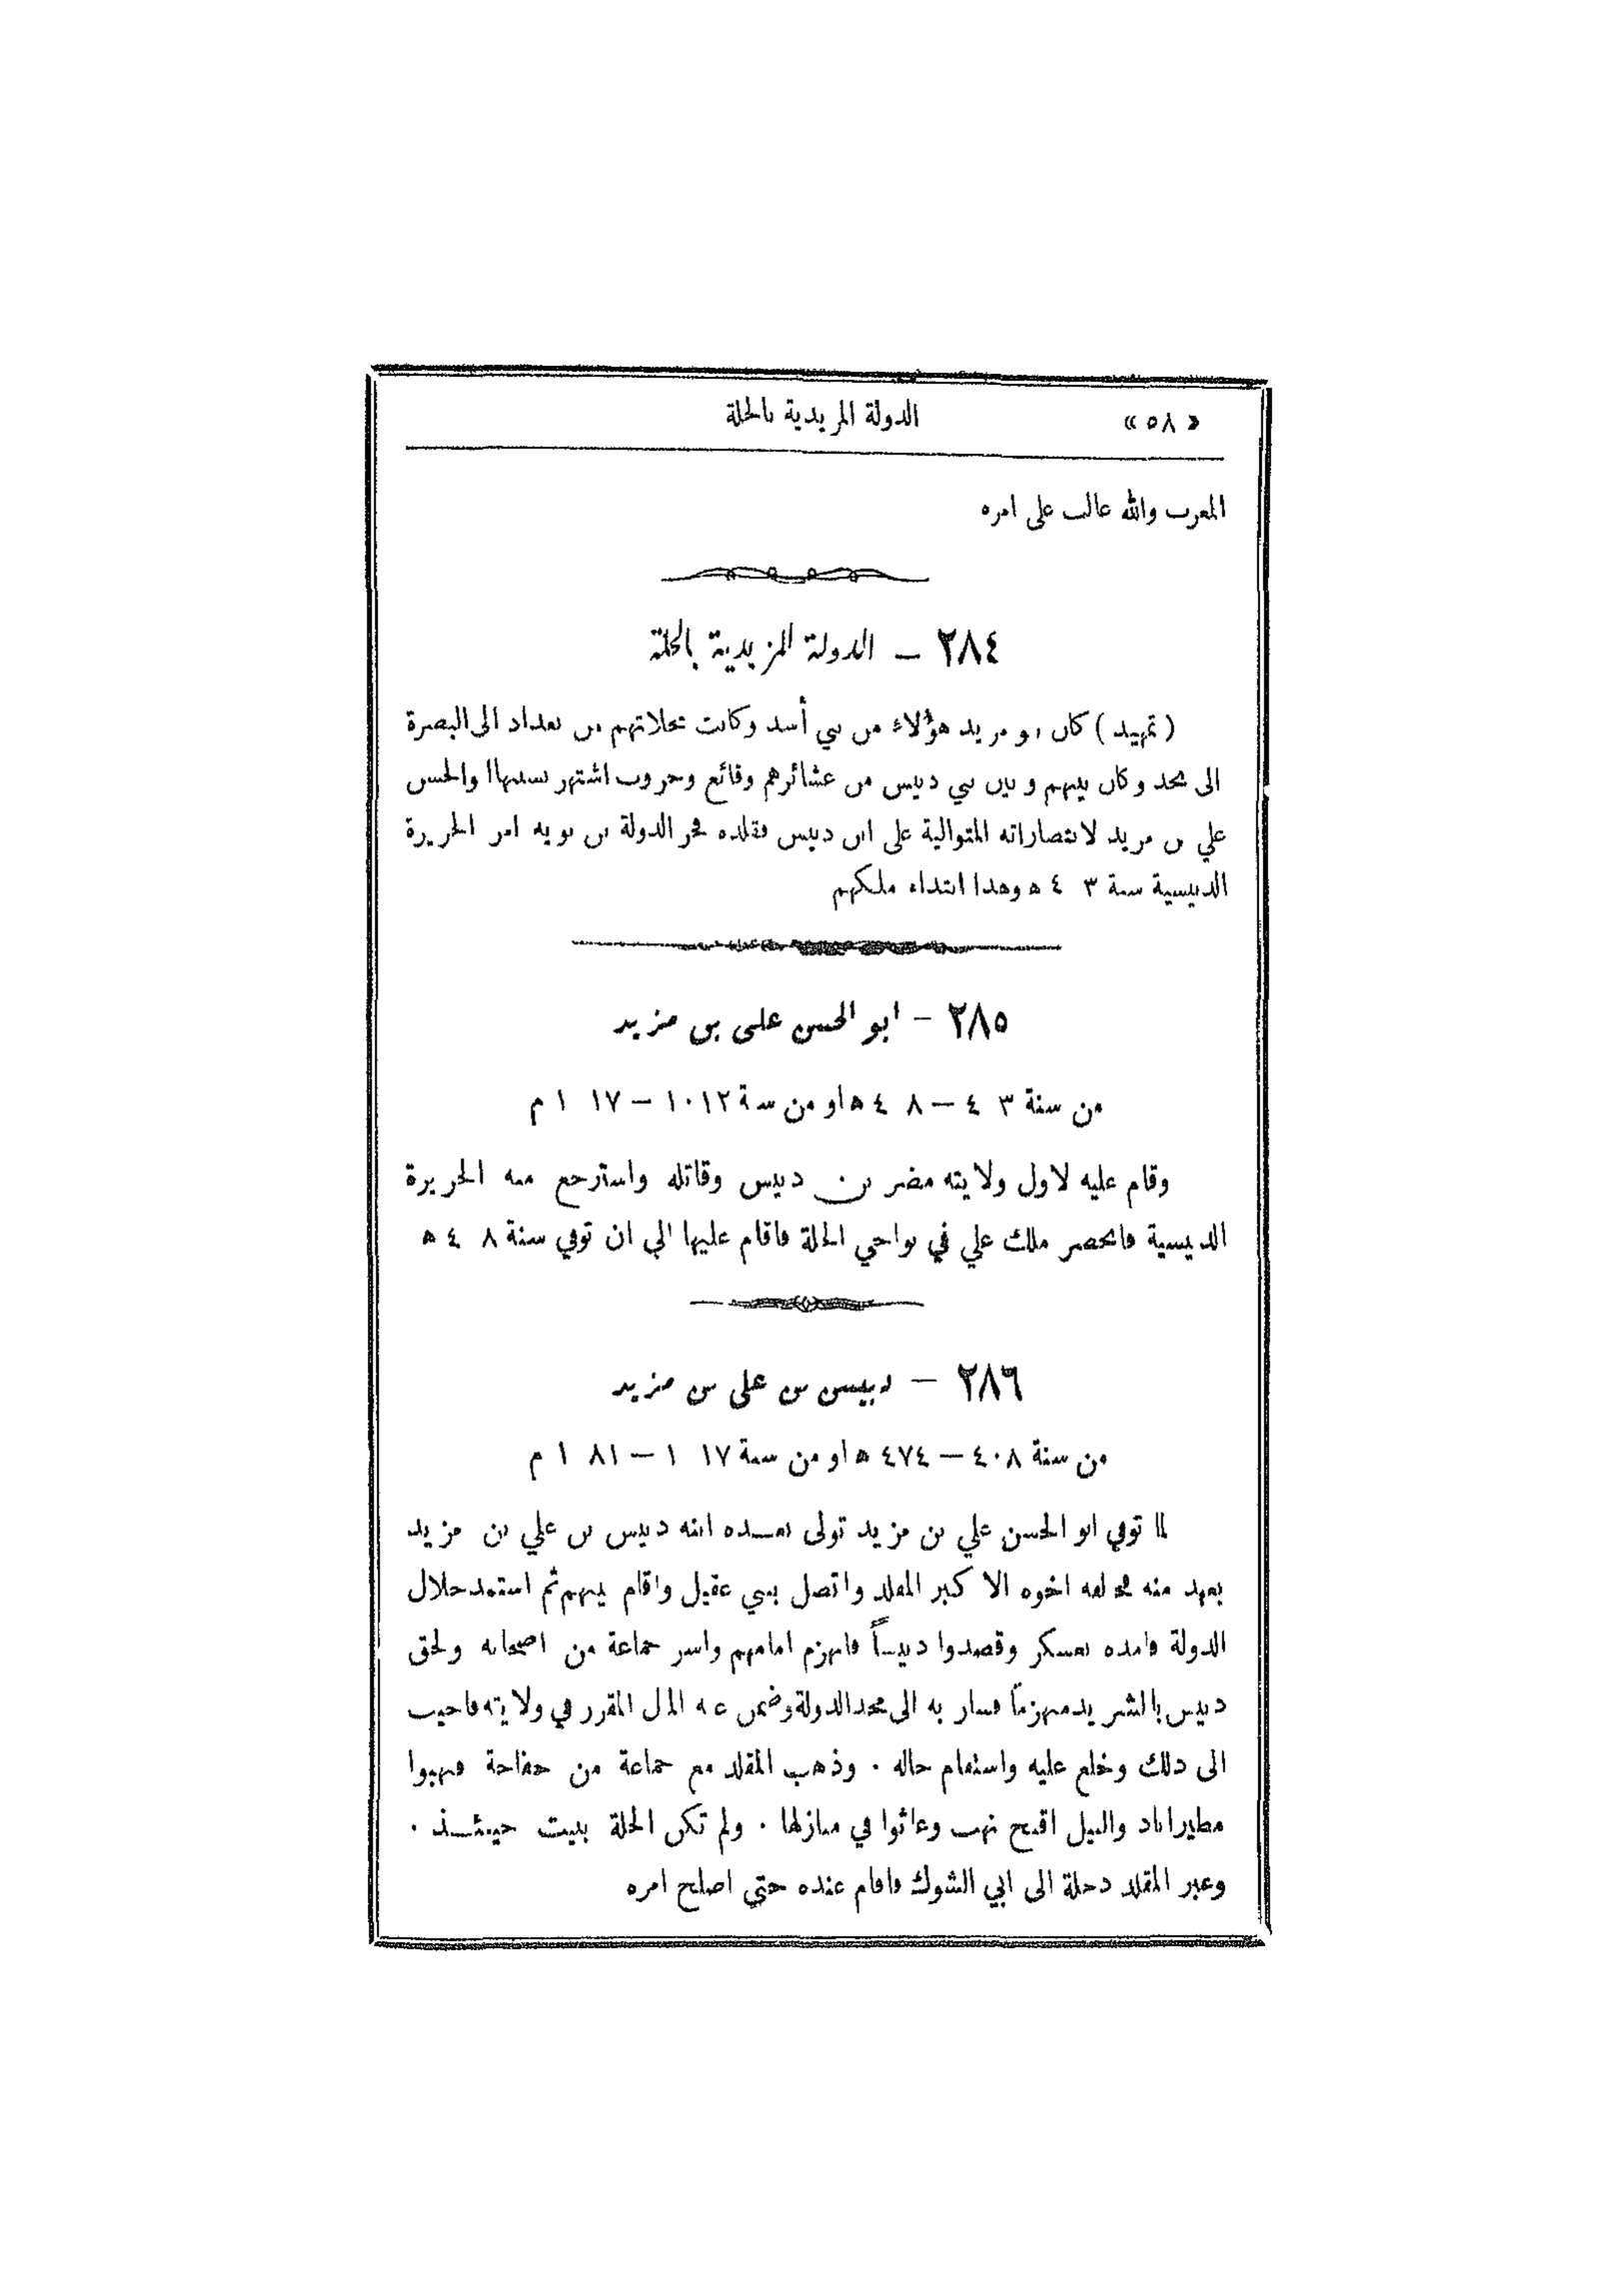 « ٥٨ » الدولة المزيدية بالحلة
المغرب والله غالب على امره
٢٨٤ – الدولة المزيدية بالحلة
( تمهيد ) كان بنو مزيد هؤلاء من بني أسد وكانت محلاتهم من بغداد الى البصرة
الى نجد وكان بينهم وبين بني دبيس من عشائرهم وقائع وحروب اشتهر بسببها ابو الحسن
علي بن مزيد لانتصاراته المتوالية على ابن دبيس فقلده فخر الدولة بن بويه امر الجزيرة
الدبيسية سنة ٤٠٣ ه وهذا ابتداء ملكهم
٢٨٥ – ابو الحسن على بن مزيد
من سنة ٤٠٣ – ٤٠٨ ه او من سنة ١٠١٢ – ١٠١٧ م
وقام عليه لاول ولايته مضر بن دبيس وقاتله واسترجع منه الجزيرة
الدبيسية فانحصر ملك علي في نواحي الحلة فاقام عليها الي ان توفي سنة ٤٠٨ ه
٢٨٦ – دبيس بن على بن مزيد
من سنة ٤٠٨ – ٤٧٤ ه او من سنة ١٠١٧ – ١٠٨١ م
لما توفي ابو الحسن علي بن مزيد تولى بعده ابنه دبيس بن علي بن مزيد
بعهد منه فخالفه اخوه الاكبر المقلد واتصل ببني عقيل واقام بينهم ثم استمد جلال
الدولة فامده بعسكر وقصدوا دبيساً فانهزم امامهم واسر جماعة من اصحابه ولحق
دبيس بالشريد منهزماً فسار به الى مجد الدولة وضمن عنه المال المقرر في ولايته فاجيب
الى ذلك وخلع عليه واستقام حاله . وذهب المقلد مع جماعة من خفاجة فنهبوا
مطيراباد والنيل اقبح نهب وعاثوا في منازلها . ولم تكن الحلة بنيت حينئذ .
وعبر المقلد دجلة الى ابي الشوك فاقام عنده حتى اصلح امره